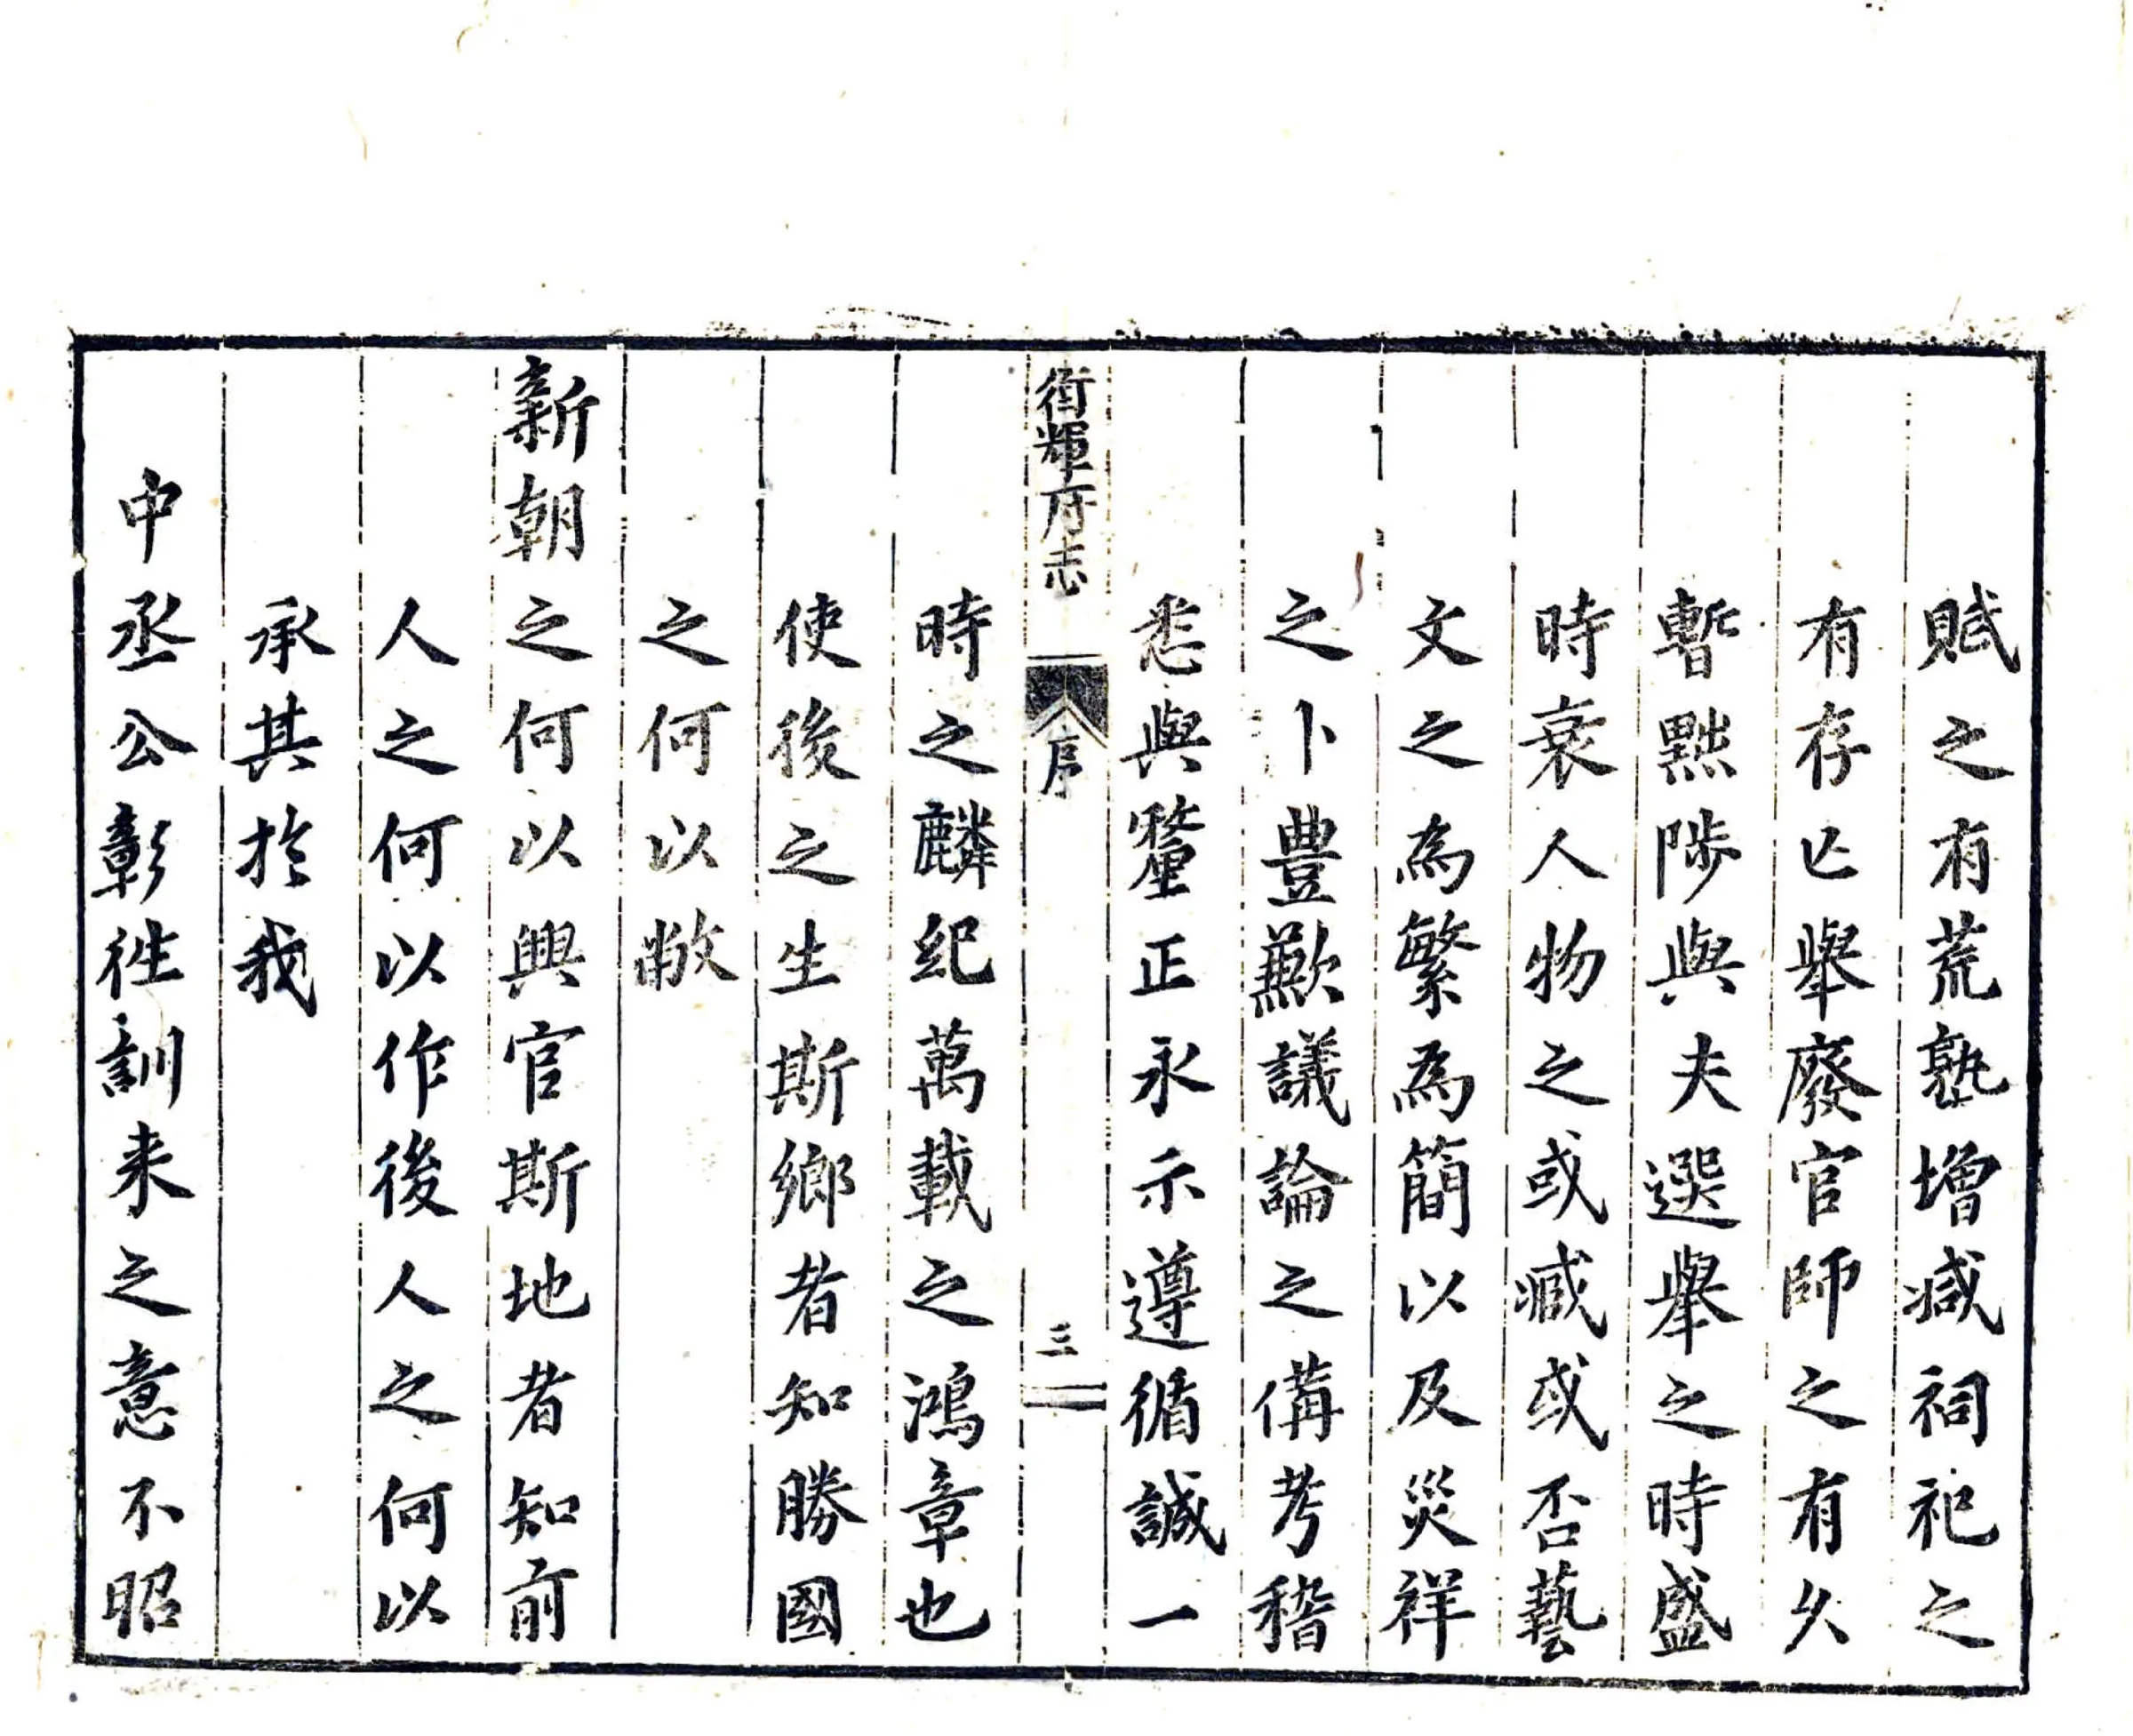 賦之有荒熟增减祠祀之
有存亡舉廢官師之有久
暫黜陟與夫選舉之時盛
時衰人物之或臧或否藝
文之為繁為簡以及災祥
之卜豊歉議論之備考稽
悉與釐正永示遵循誠一
衛輝府志
序
三
時之麟紀萬載之鴻章也
使後之生斯鄉者知勝國
之何以敝
新朝之何以興官斯地者知前
人之何以作後人之何以
承其於我
中丞公彰徃訓来之意不昭